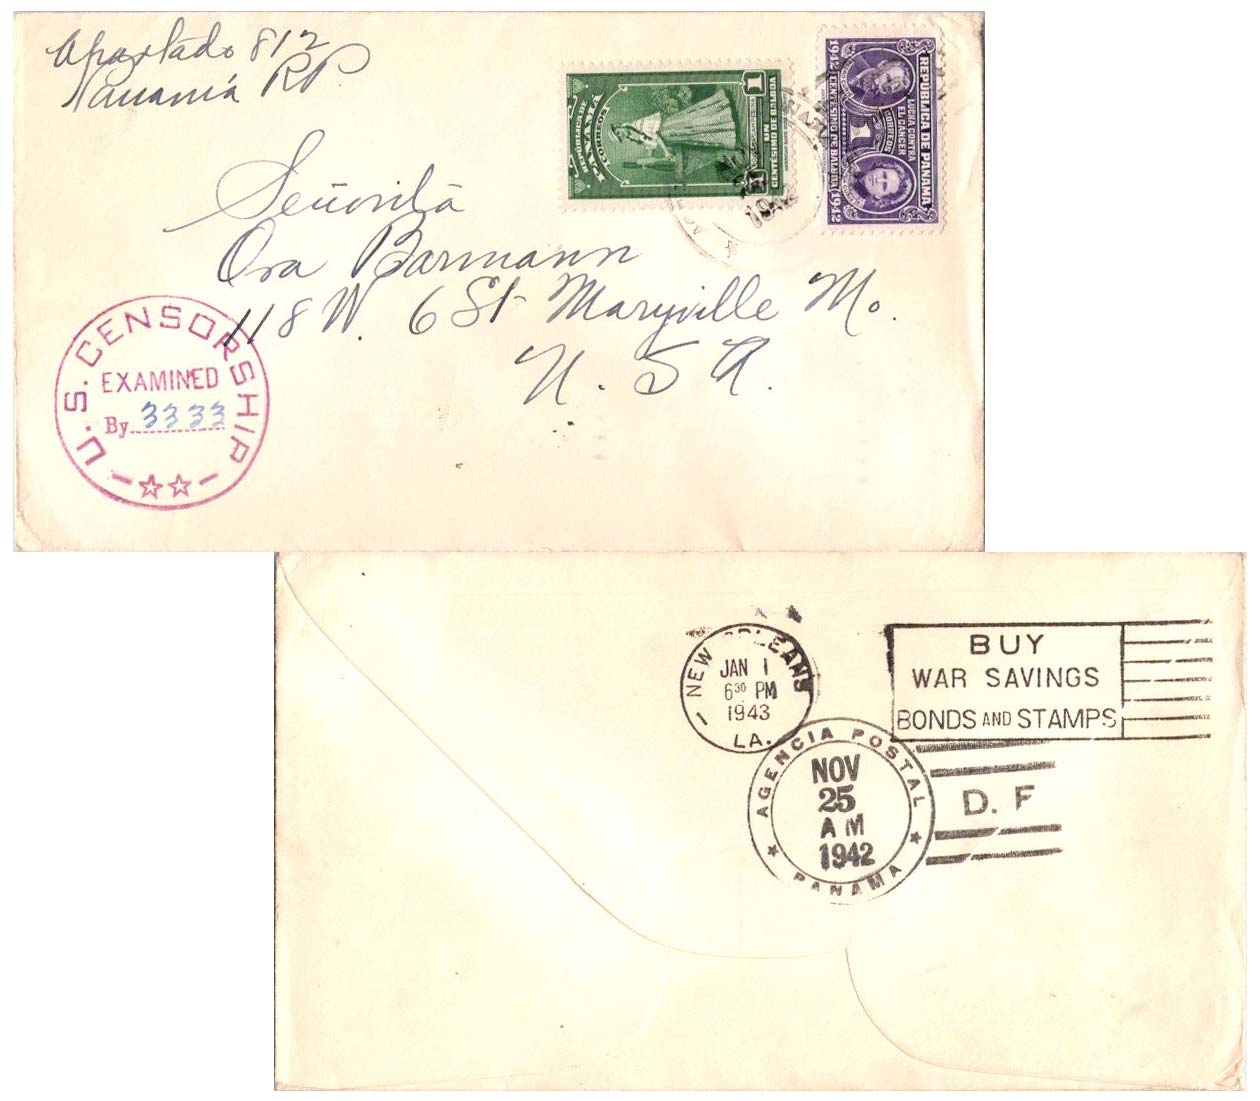 Apartado 812
Panamá RP.
Señorita
Ora Barmann
118 W. 6 St. Maryville Mo.
U. S. A.
REPÚBLICA DE
PANAMÁ
CORREOS
1
UN
CENTÉSIMO DE BALBOA
REPUBLICA DE PANAMA
LUCHA CONTRA
EL CANCER
CORREOS
1
1942 CENTESIMO DE BALBOA 1942
NOV
1942
U. S. CENSORSHIP
EXAMINED
By 3333
NEW ORLEANS
JAN 1
6 30 PM
1943
LA.
BUY
WAR SAVINGS
BONDS AND STAMPS
AGENCIA POSTAL
NOV
25
AM
1942
PANAMA
D. F